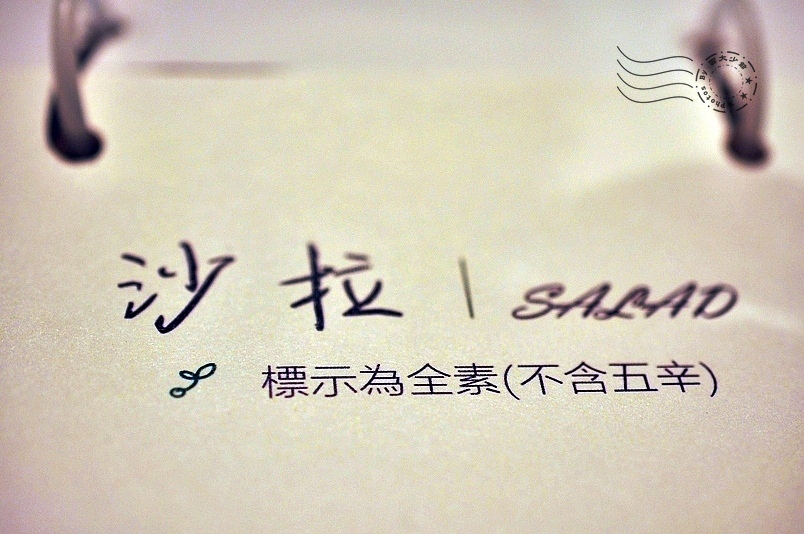 沙拉 | SALAD
標示為全素(不含五辛)